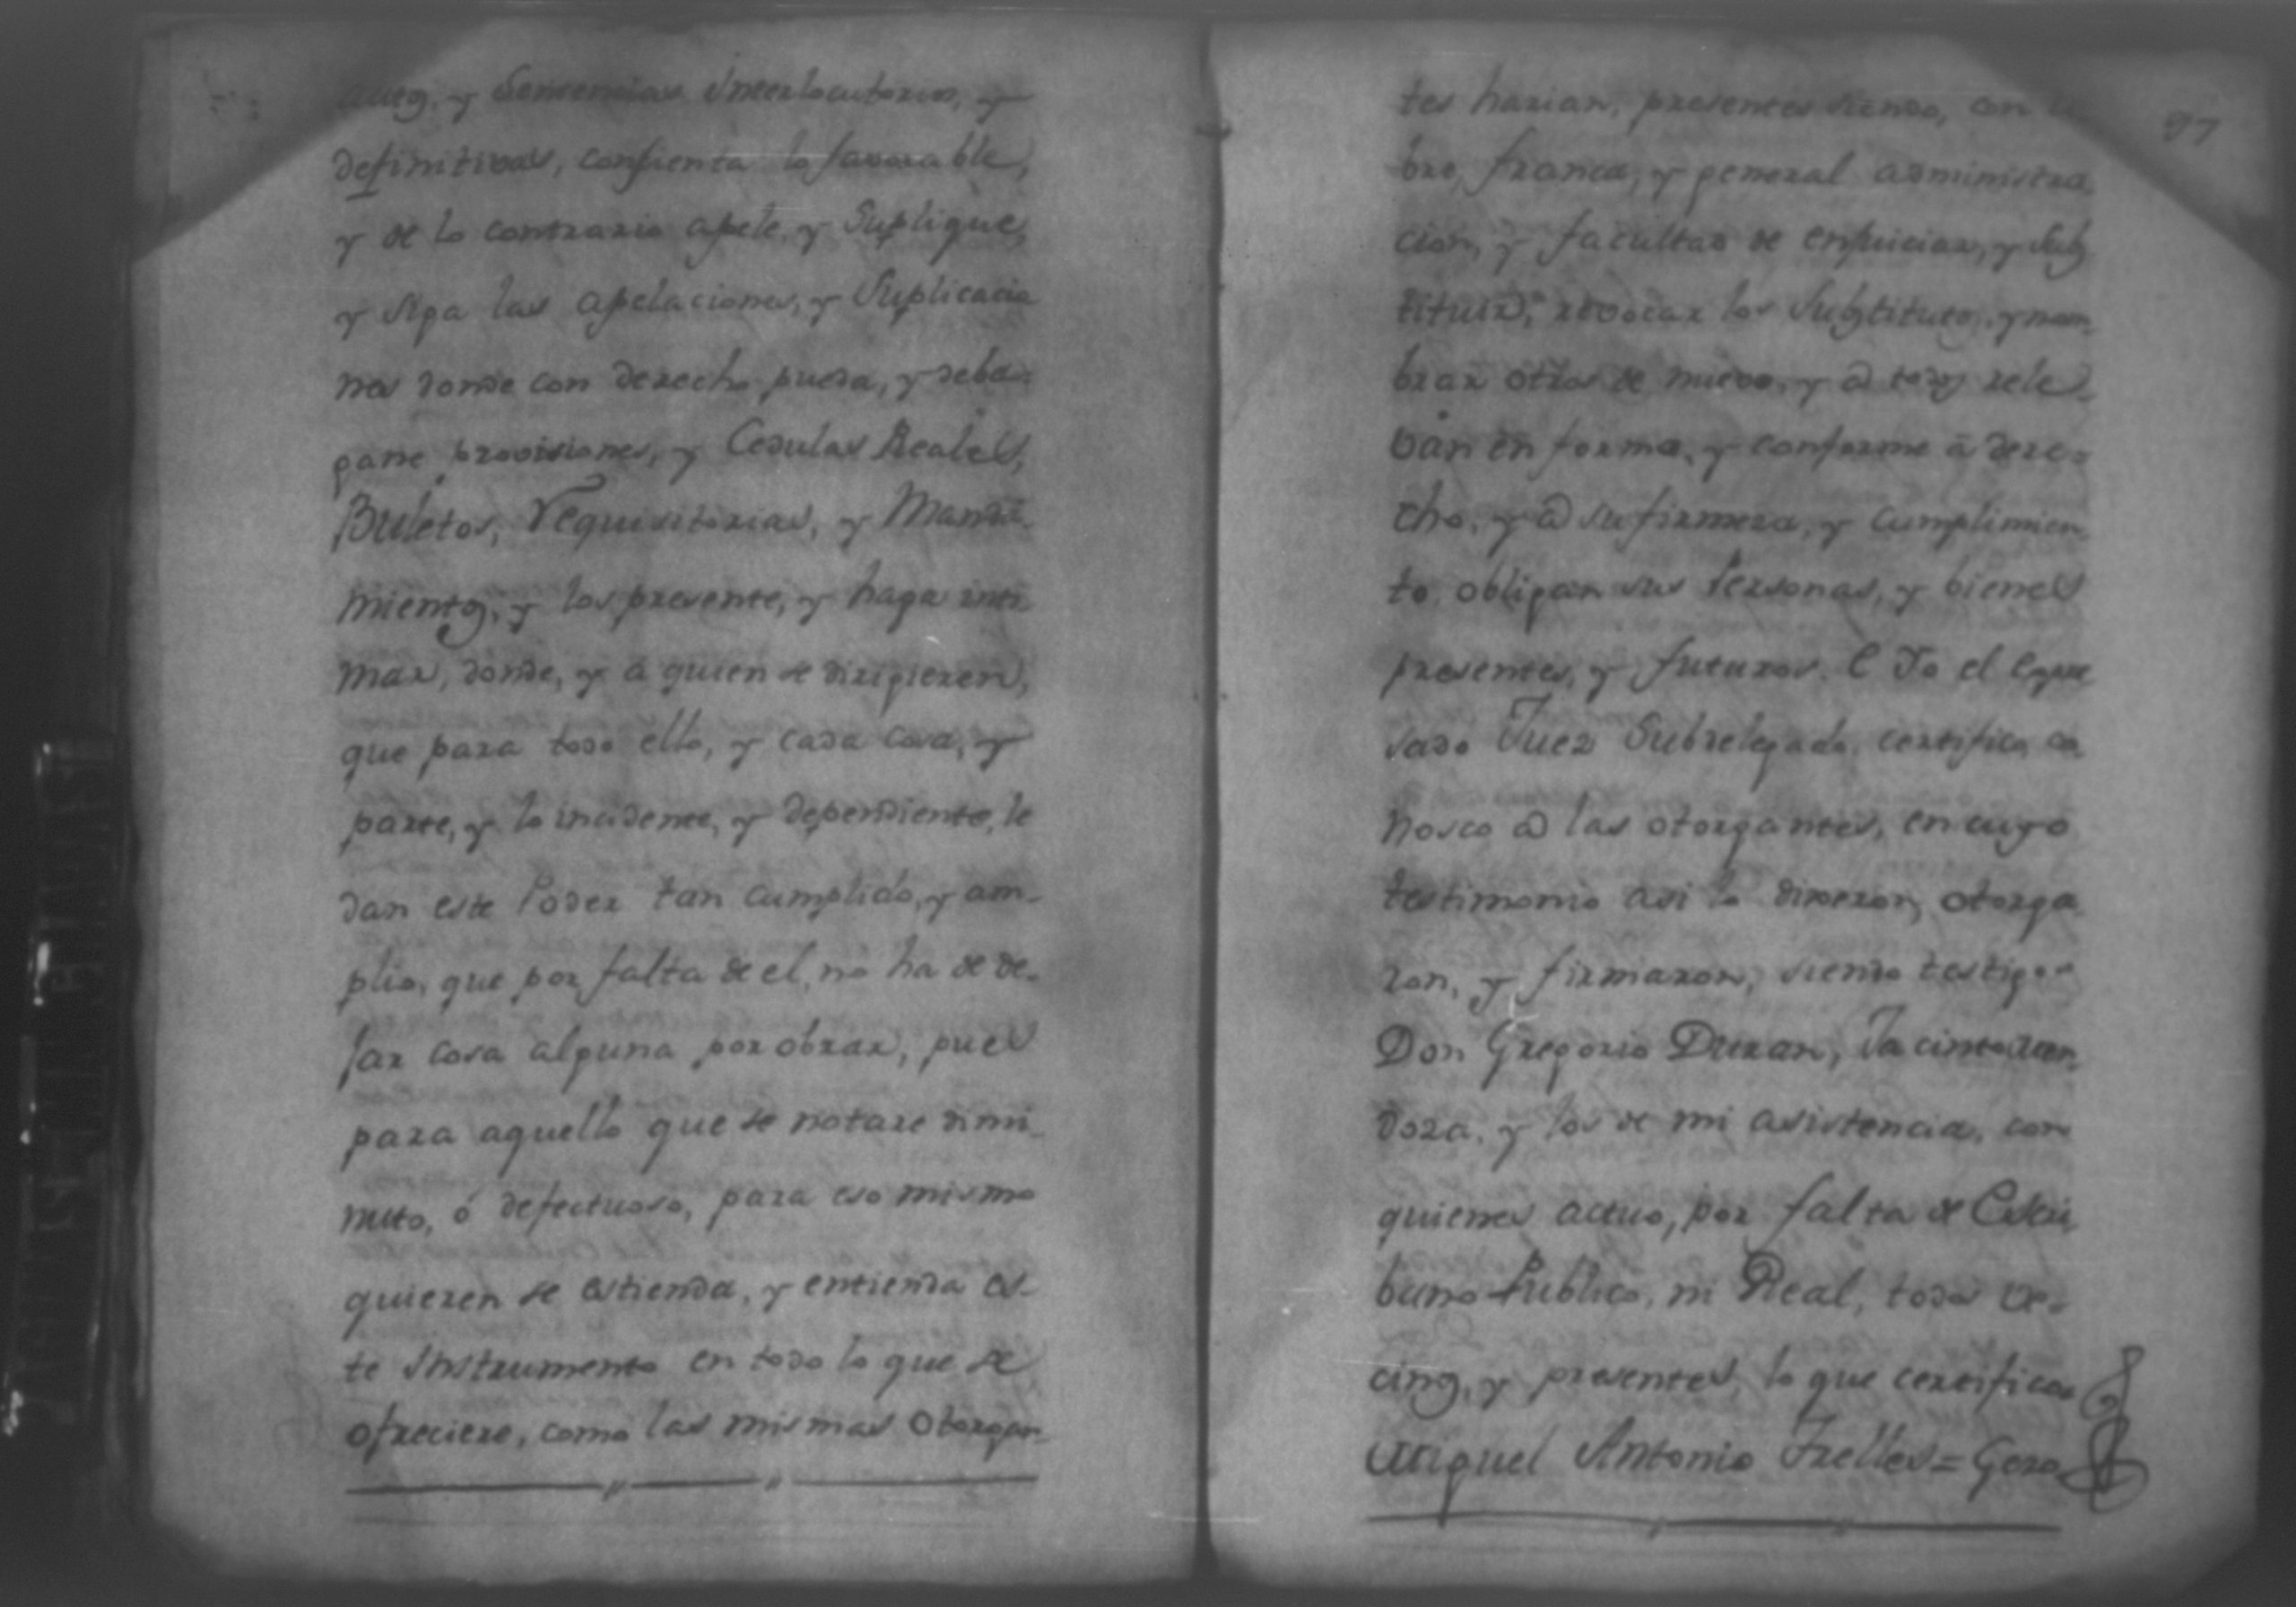 autos, y Sentencias Interlocutorias, y
definitivas, consienta lo favorable,
y de lo contrario apele, y Suplique,
y siga las apelaciones, y Suplicacio
nes donde con derecho pueda, y deba:
gane provisiones, y Cedulas Reales,
Buletos, Requisitorias, y Manda-
mientos, y los presente, y haga inti-
mar, donde, y a quien se dirigieren,
que para todo ello, y cada cosa, y
parte, y lo incidente, y dependiente, le
dan este Poder tan cumplido, y am-
plio, que por falta de el, no ha de de-
jar cosa alguna por obrar, pues
para aquello que se notare dimi-
nuto, ó defectuoso, para eso mismo
quieren se estienda, y entienda es-
te Instrumento en todo lo que se
ofreciere, como las mismas Otorgan-
97
tes harian, presentes siendo, con
bre, franca, y general administra
cion, y facultad de enjuiciar, y Subs
tituir, revocar los Substitutos, y nom-
brar otros de nuevo, y a todos rele-
van en forma, y conforme á dere-
cho, y a su firmeza, y cumplimien
to, obligan sus Personas, y bienes
presentes, y futuros. E Yo el Expre
sado Juez Subdelegado, certifico co
nosco a las otorgantes, en cuyo
testimonio asi lo dixeron, otorga
ron, y firmaron, siendo testigos
Don Gregorio Duran, Jacinto Men-
doza, y los de mi asistencia, con
quienes actuo, por falta de Escri
bano Publico, ni Real, todos ve-
cinos, y presentes, lo que certifico
Miguel Antonio Trelles = Gero